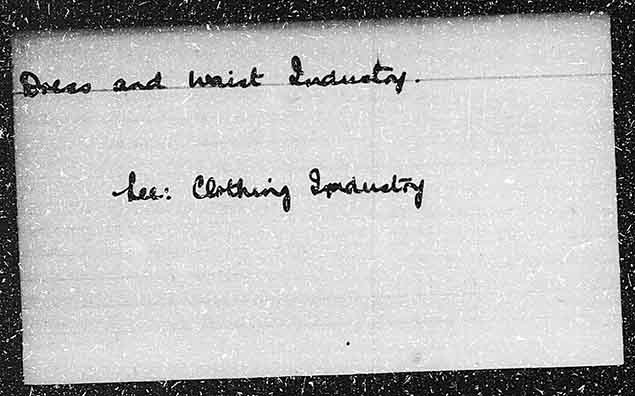 Dress and Waist Industry.
See: Clothing Industry